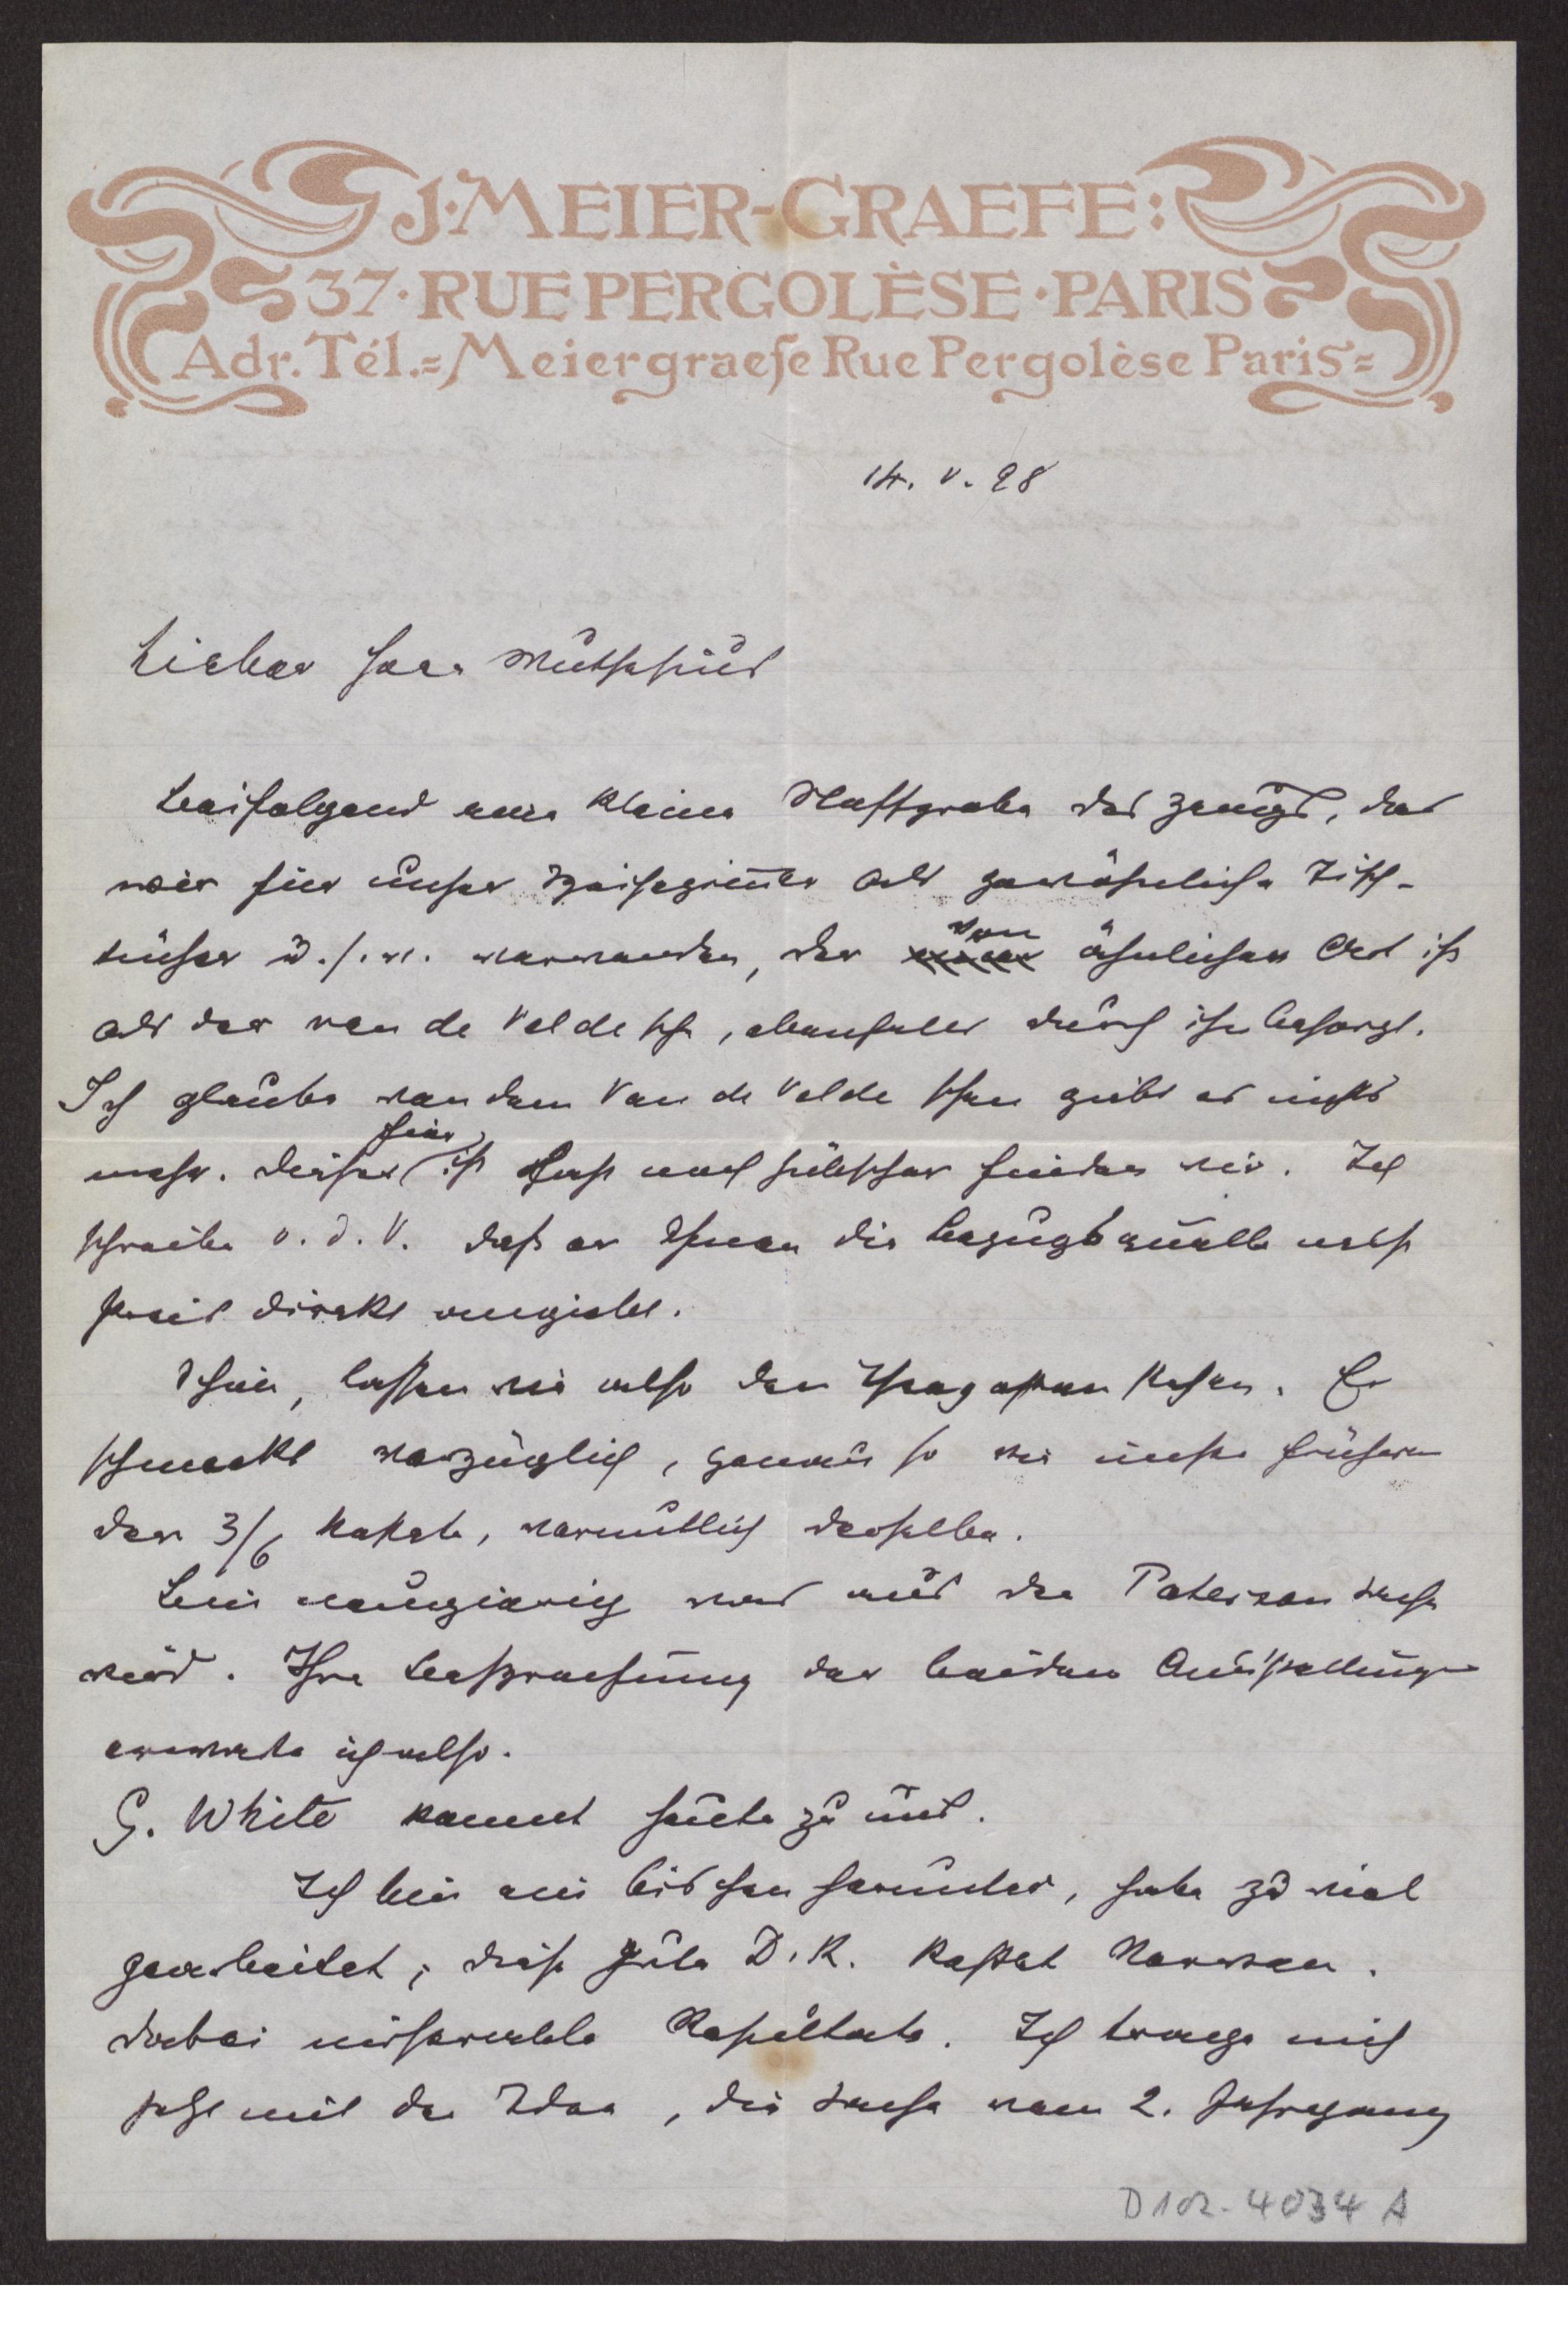 J. MEIER-GRAEFE:
37. RUE PERGOLÈSE. PARIS
Adr. Tél.= Meiergraefe Rue Pergolèse Paris=
14. V. 98
Lieber Herr Muthesius
Beifolgend eine kleine Stoffprobe des Zeugs, das
wir für unser Speisezimmer als gewöhnliche Tisch-
tücher u. s. w. verwenden, der von ähnlicher Art ist
als der van de Veldesche, ebenfalls durch ihn besorgt.
Ich glaube von dem Van de Velde schen giebt es nichts
mehr. Dieser hier ist fast noch hübscher finden wir. Ich
schreibe v. d. V. daß er Ihnen die Bezugsquelle nebst
Preis direkt angiebt.
Schön, lassen wir also den Thee gehen. Er
schmeckt vorzüglich, genau so wie unser früherer
der 3/6 kostete, vermutlich derselbe.
Bin neugierig was aus der Paterson Sache
wird. Ihre Besprechung der beiden Ausstellungen
erwarte ich also.
G. White kommt heute zu uns.
Ich bin ein bischen herunter, habe zu viel
gearbeitet; diese gute D. K. kostet Nerven.
Dabei miserable Resultate. Ich trage mich
jetzt mit der Idee, die Sache vom 2. Jahrgang
D102-4034 A